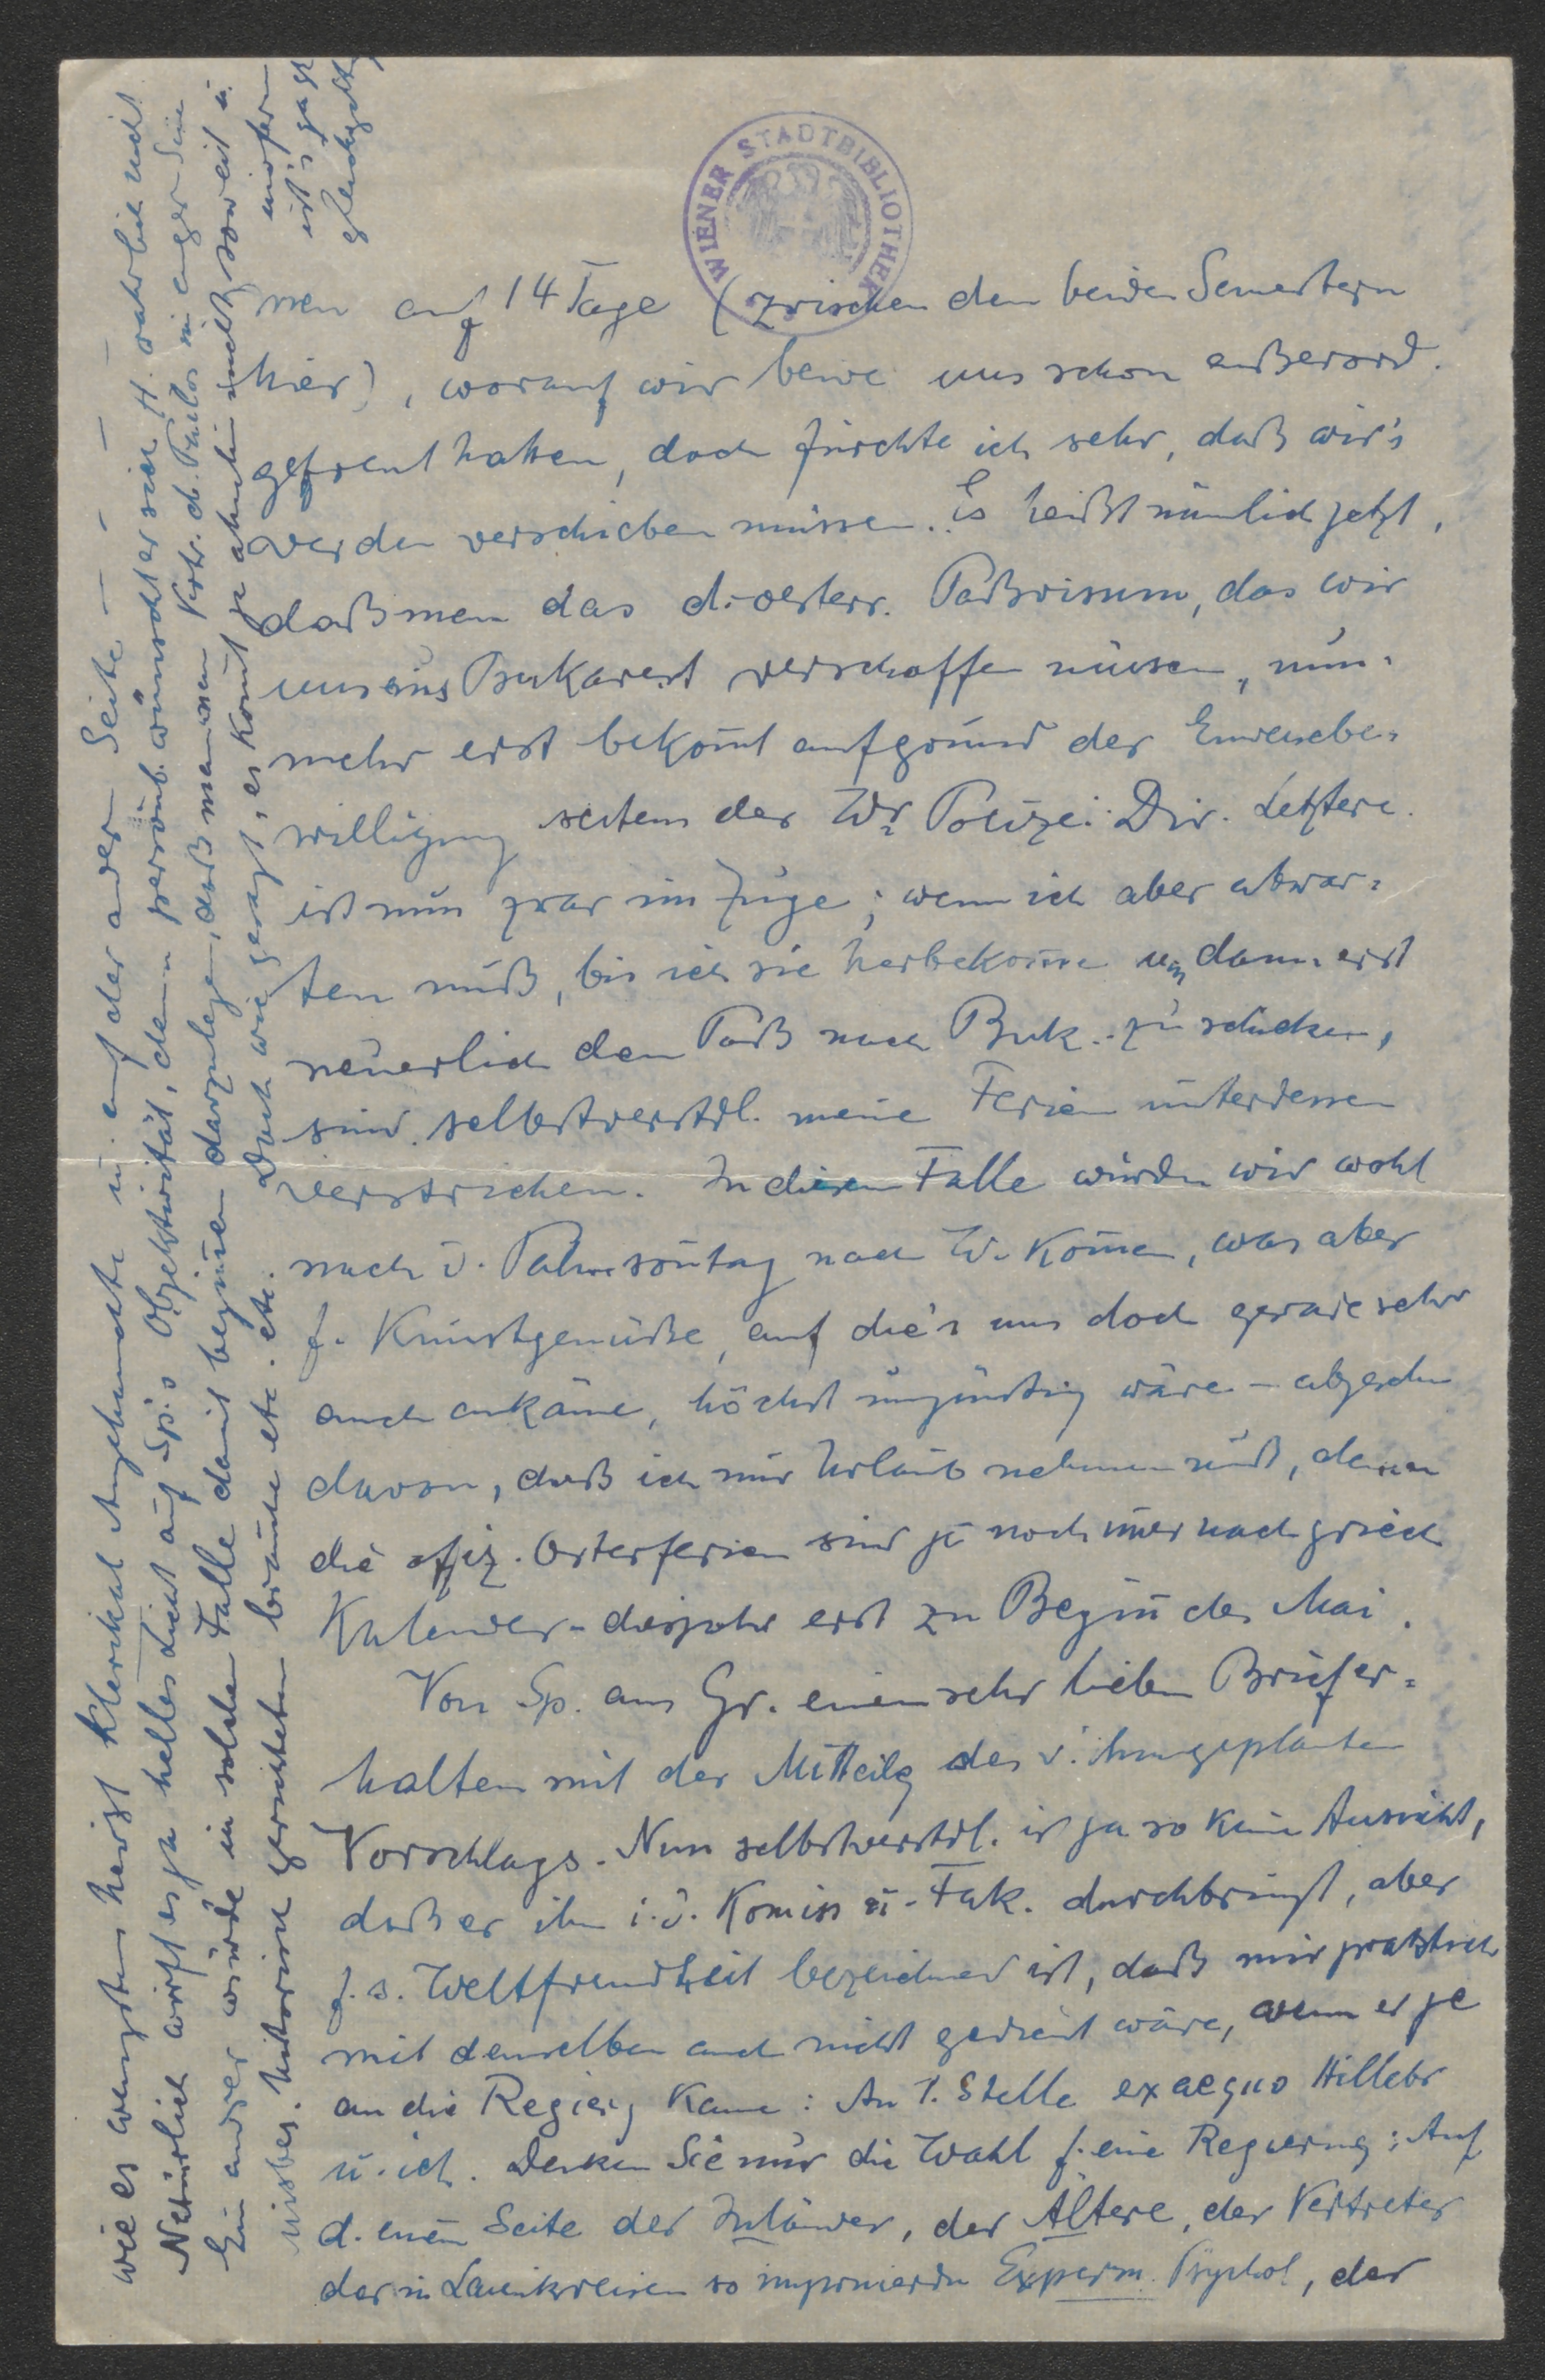 WIENER STADTBIBLIOTHEK
nen auf 14 Tage (zwischen den beiden Semestern
hier), worauf wir beide uns schon außerord.
gefreut hatten, doch fürchte ich sehr, daß wir's
werden verschieben müssen. Es heißt nämlich jetzt,
daß man das d.-oesterr. Paßvisum, das wir
uns aus Bukarest verschaffen müssen, nun-
mehr erst bekom̅t aufgrund der Einreisebe-
willigung seitens der Wr Polizei-Dir. Letztere
ist nun zwar im Zuge; wenn ich aber abwar-
ten muß, bis ich sie herbekom̅e um dann erst
neuerlich den Paß nach Buk. zu schicken,
sind selbstverstdl. meine Ferien unterdessen
verstrichen. In diesem Falle würden wir wohl
nach d. Palmson̅tag nach W. kom̅en, was aber
f. Kunstgenüße, auf die's uns doch gerade sehr
auch ankäme, höchst ungünstig wäre – abgesehn
davon, daß ich mir Urlaub nehmen muß, denn
die offiz. Osterferien sind ja noch im̅er nach griech
Kalender – diesjahr erst zu Begin̅ des Mai.
Von Sp. aus Gr. einen sehr lieben Brief er-
halten mit der Mitteilg des v. ihm geplanten
Vorschlags. Nun selbstverstdl. ist ja so keine Aussicht,
daß er ihn i. d. Kom̅iss u. Fak. durchbringt, aber
f. s. Weltfremdheit bezeichnend ist, daß mir praktisch
mit demselben auch nicht gedient wäre, wenn er je
an die Regierg käme: An 1. Stelle ex aequo Hillebr
u. ich. Denken Sie nur die Wahl f. eine Regierung: Auf
d. einen Seite der Inländer, der Ältere, der Vertreter
der in Laienkreisen so imponierdn Experm. Psychol, der
wie es wenigstens heißt klerikal Angehauchte u. auf der ander Seite – – – –
Natürlich wirft es ja helles Licht auf Sp.'s Objektivität, denn persönl. wünscht er sich H. wahrlich nicht
Ein andrer würde in solchen Falle damit begin̅en darzulegen, daß man einen Vertr. d. Philos im enger Sin̅e
insbes. historisch gerichteten brauche etc. etc. Doch wie gesagt, es kom̅t ja ohnehin nicht soweit u.
insofern
ist's ganz
gleichgiltig